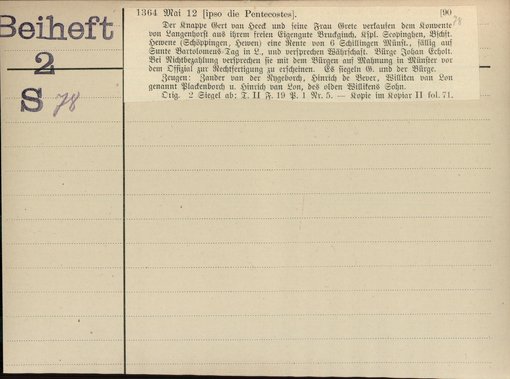 Beiheft
2
S 78
1364 Mai 12 [ipso die Pentecostes]. [90
78
Der Knappe Gert van Heek und seine Frau Grete verkaufen dem Konvente
von Langenhorst aus ihrem freien Eigengute Bruckginch, Kspl. Scopinghen, Bschft.
Hewene (Schöppingen, Heven) eine Rente von 6 Schillingen Münst., fällig auf
Sunte Bartolomeus Tag in L., und versprechen Währschaft. Bürge Johan Echolt.
Bei Nichtbezahlung versprechen sie mit dem Bürgen auf Mahnung in Münster vor
dem Offizial zur Rechtfertigung zu erscheinen. Es siegeln G. und der Bürge.
Zeugen: Zander van der Nygeborch, Hinrich de Bever, Williken van Lon
genannt Plackenborch u. Hinrich van Lon, des olden Willikens Sohn.
Orig. 2 Siegel ab: T. II F. 19 P. 1 Nr. 5. — Kopie im Kopiar II fol. 71.